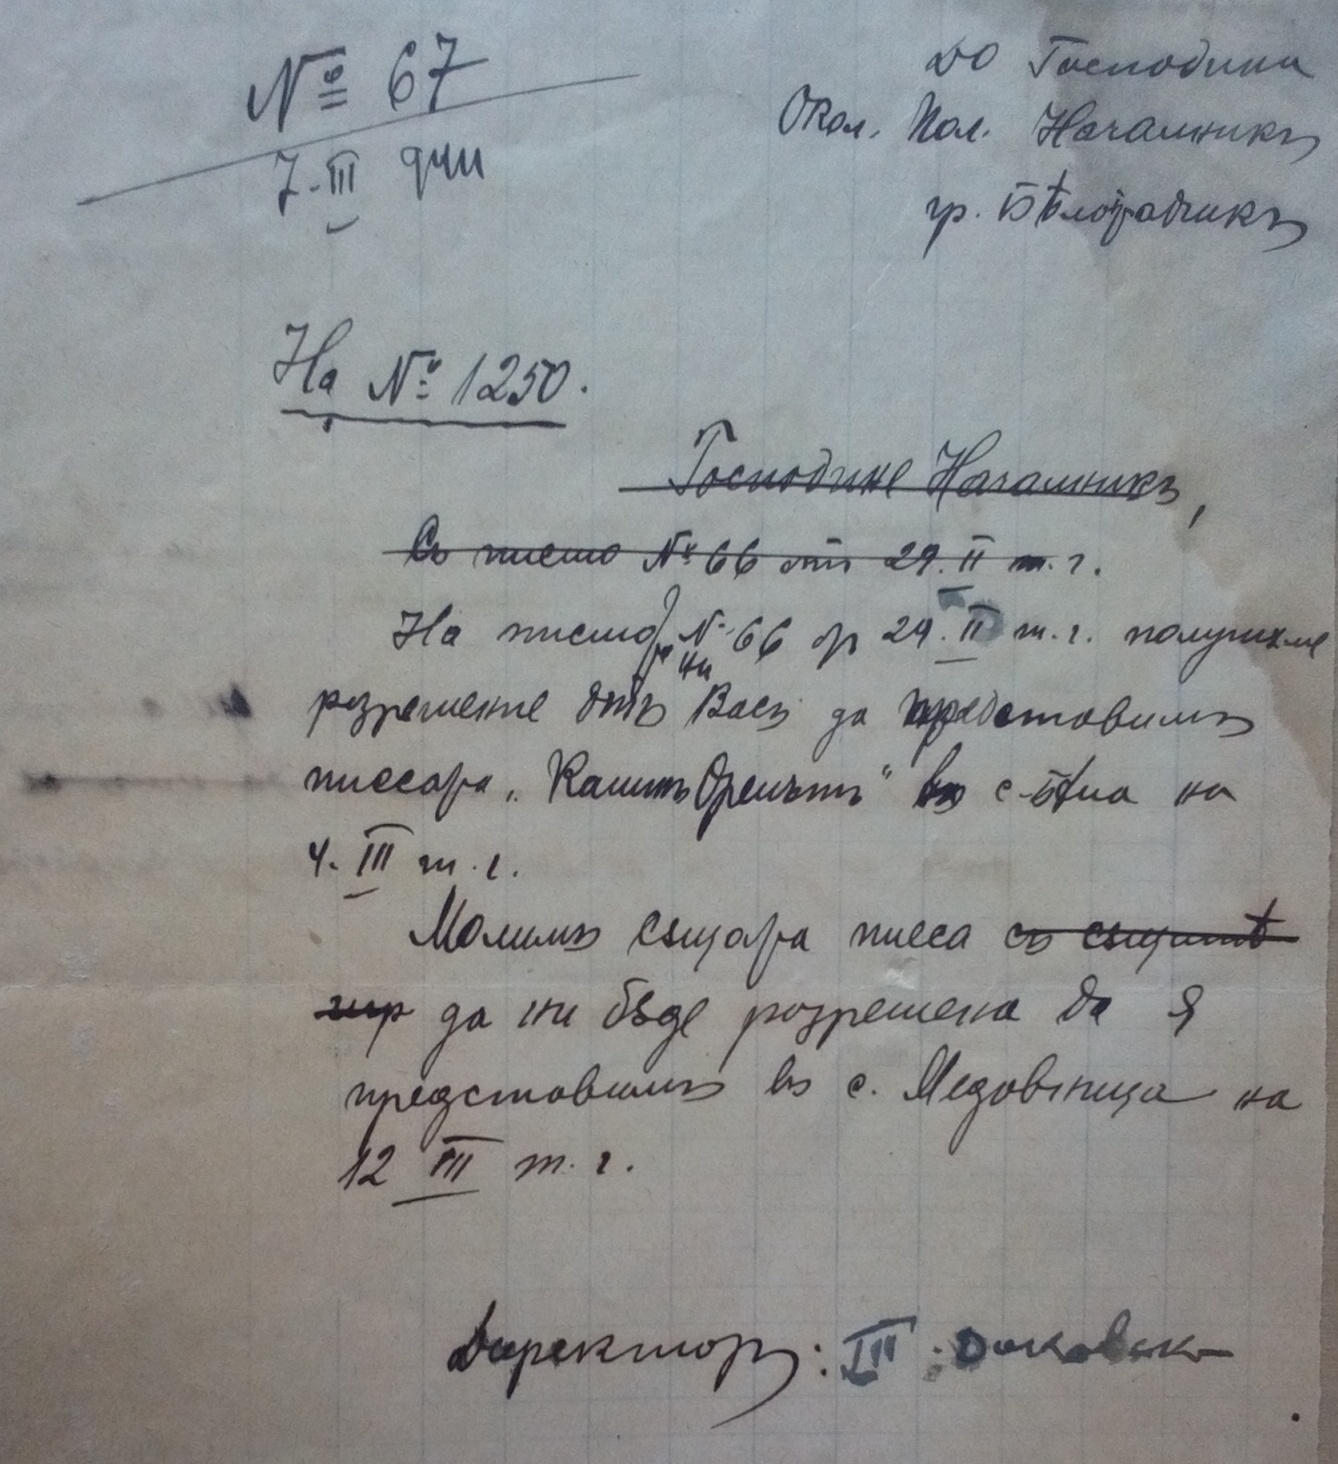 № 67
7.III
До Господина
Окол. Пол. Началникъ
гр. Бѣлоградчикъ
На № 1250.
Господине Началникъ,
Съ писмо № 66 отъ 29.II т.г.
На писмото ни № 66 от 29.II т.г. получихме
разрешение отъ Васъ да представимъ
пиесата „ " въ с. на
4.III т.г.
Молимъ същата пиеса съ същитѣ
да ни бѫде разрешена да я
представимъ въ с. Медовница на
12 III т.г.
Директоръ: